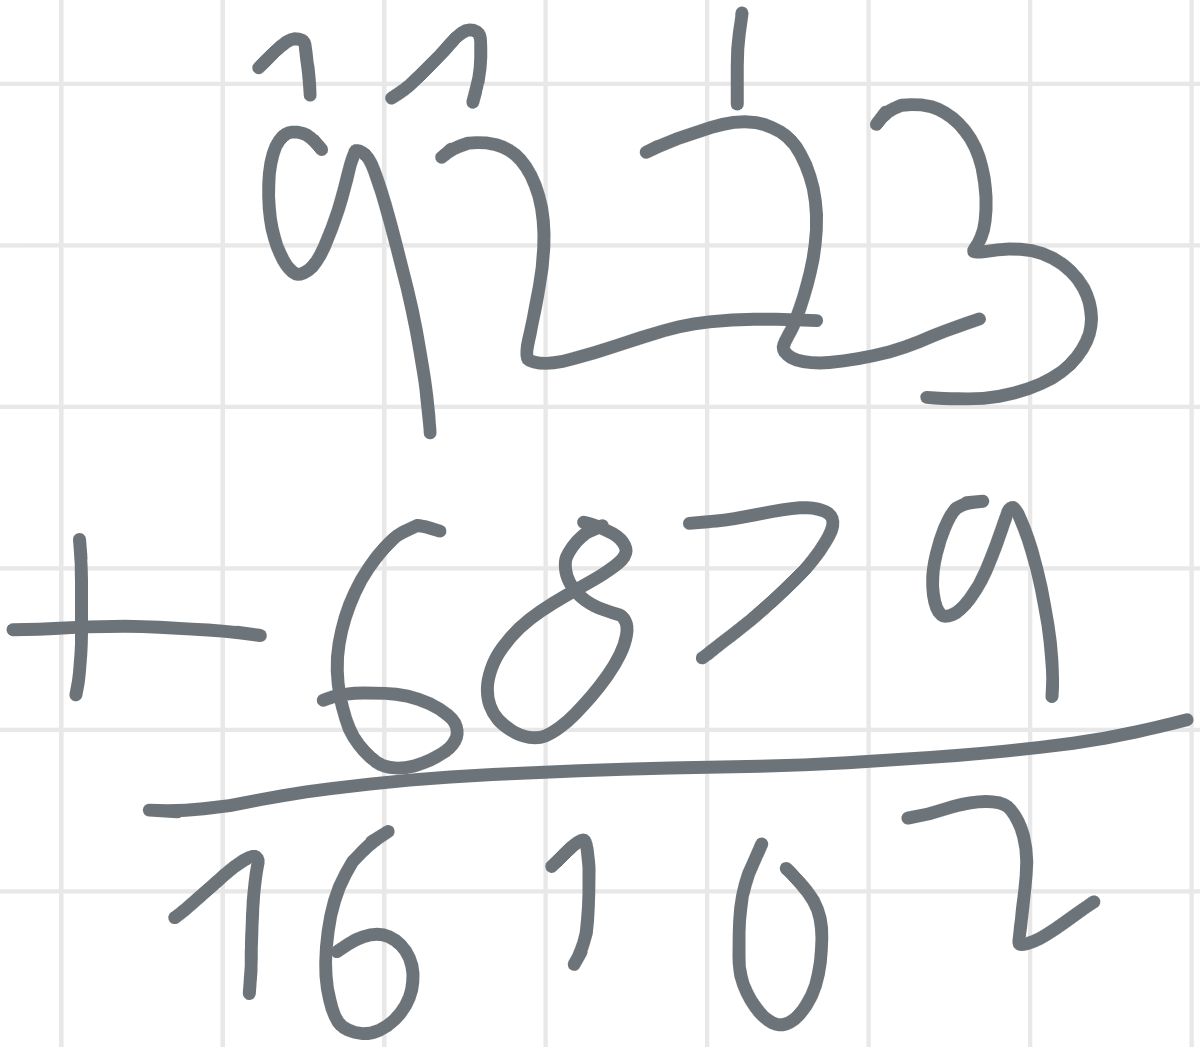 1 1 1
9223
+ 6879
16102